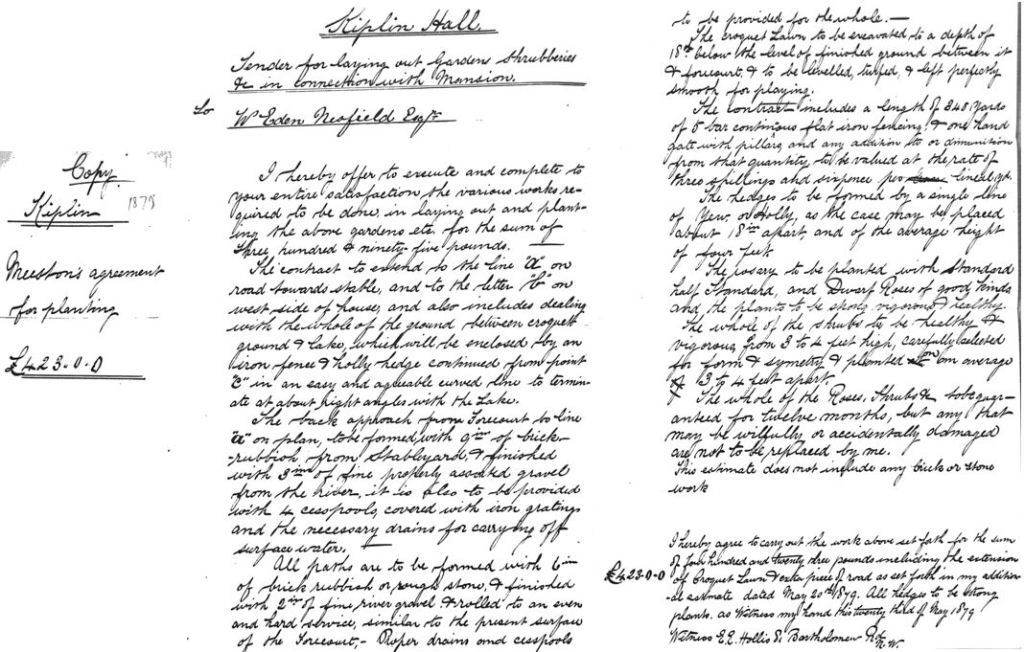 Copy.
Kiplin 1878
Meeston's agreement
for planting
£423.0.0
Kiplin Hall.
Tender for laying out Gardens Shrubberies
&c in connection with Mansion.
To
W Eden Nesfield Esqre
I hereby offer to execute and complete to
your entire satisfaction the various works re-
quired to be done, in laying out and plant-
ing the above gardens etc. for the sum of
Three hundred & ninety five pounds. —
The contract to extend to the line "a" on
road towards stable, and to the letter "b" on
west side of house, and also includes dealing
with the whole of the ground between croquet
ground & Lake, which will be enclosed by an
iron fence & holly hedge continued from point
"C" in an easy and agreeable curved line to termin-
ate at about right angles with the Lake.
The back approach from Forecourt to line
"a" on plan, to be formed with 9ins of brick-
rubbish from Stableyard, & finished
with 3ins of fine properly assorted gravel
from the river, it is also to be provided
with 4 cesspools, covered with iron gratings
and the necessary drains for carrying off
surface water. —
All paths are to be formed with 6in
of brick rubbish or rough stone, & finished
with 2ins of fine river gravel & rolled to an even
and hard service, similar to the present surface
of the Forecourt, - Proper drains and cesspools
to be provided for the whole. —
The croquet Lawn to be excavated to a depth of
18in below the level of finished ground between it
& forecourt, & to be levelled, turfed, & left perfectly
smooth for playing.
The contract includes a length of 348 yards
of 5 bar continous flat iron fencing & one hand
gate with pillars and any addition to or dimunition
from that quantity, to be valued at the rate of
three shillings and sixpence per lineal yd.
The hedges to be formed by a single line
of Yew or Holly, as the case may be placed
about 18in apart, and of the average height
of four feet
The rosary to be planted with Standard
half Standard, and Dwarf Roses of good kinds
and the plants to be strong vigorous & healthy.
The whole of the shrubs to be healthy &
vigorous from 3 to 4 feet high, carefully selected
for form & symetry & planted on average
of 3 to 4 feet apart.
The whole of the Roses, Shrubs &c to be guar-
anteed for twelve months, but any that
may be wilfully or accidentally damaged
are not to be replaced by me.
This estimate does not include any brick or stone
work
I hereby agree to carry out the work above set forth for the sum
£423.0.0 of four hundred and twenty three pounds including the extension
of Croquet Lawn & extra piece of road as set forth in my addition-
al estimate dated May 20th 1879. All hedges to be strong
plants. as Witness my hand this twenty third of May 1879
Witness E.E. Hollis St Bartholomew Rd.
N.W.